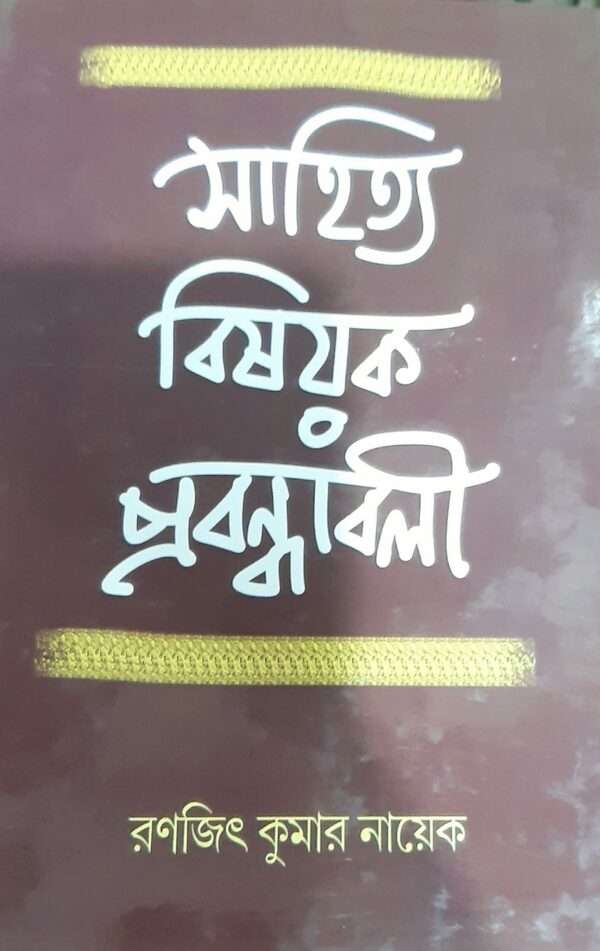 সাহিত্য
বিষয়ক
প্রবন্ধাবলী
রণজিৎ কুমার নায়েক